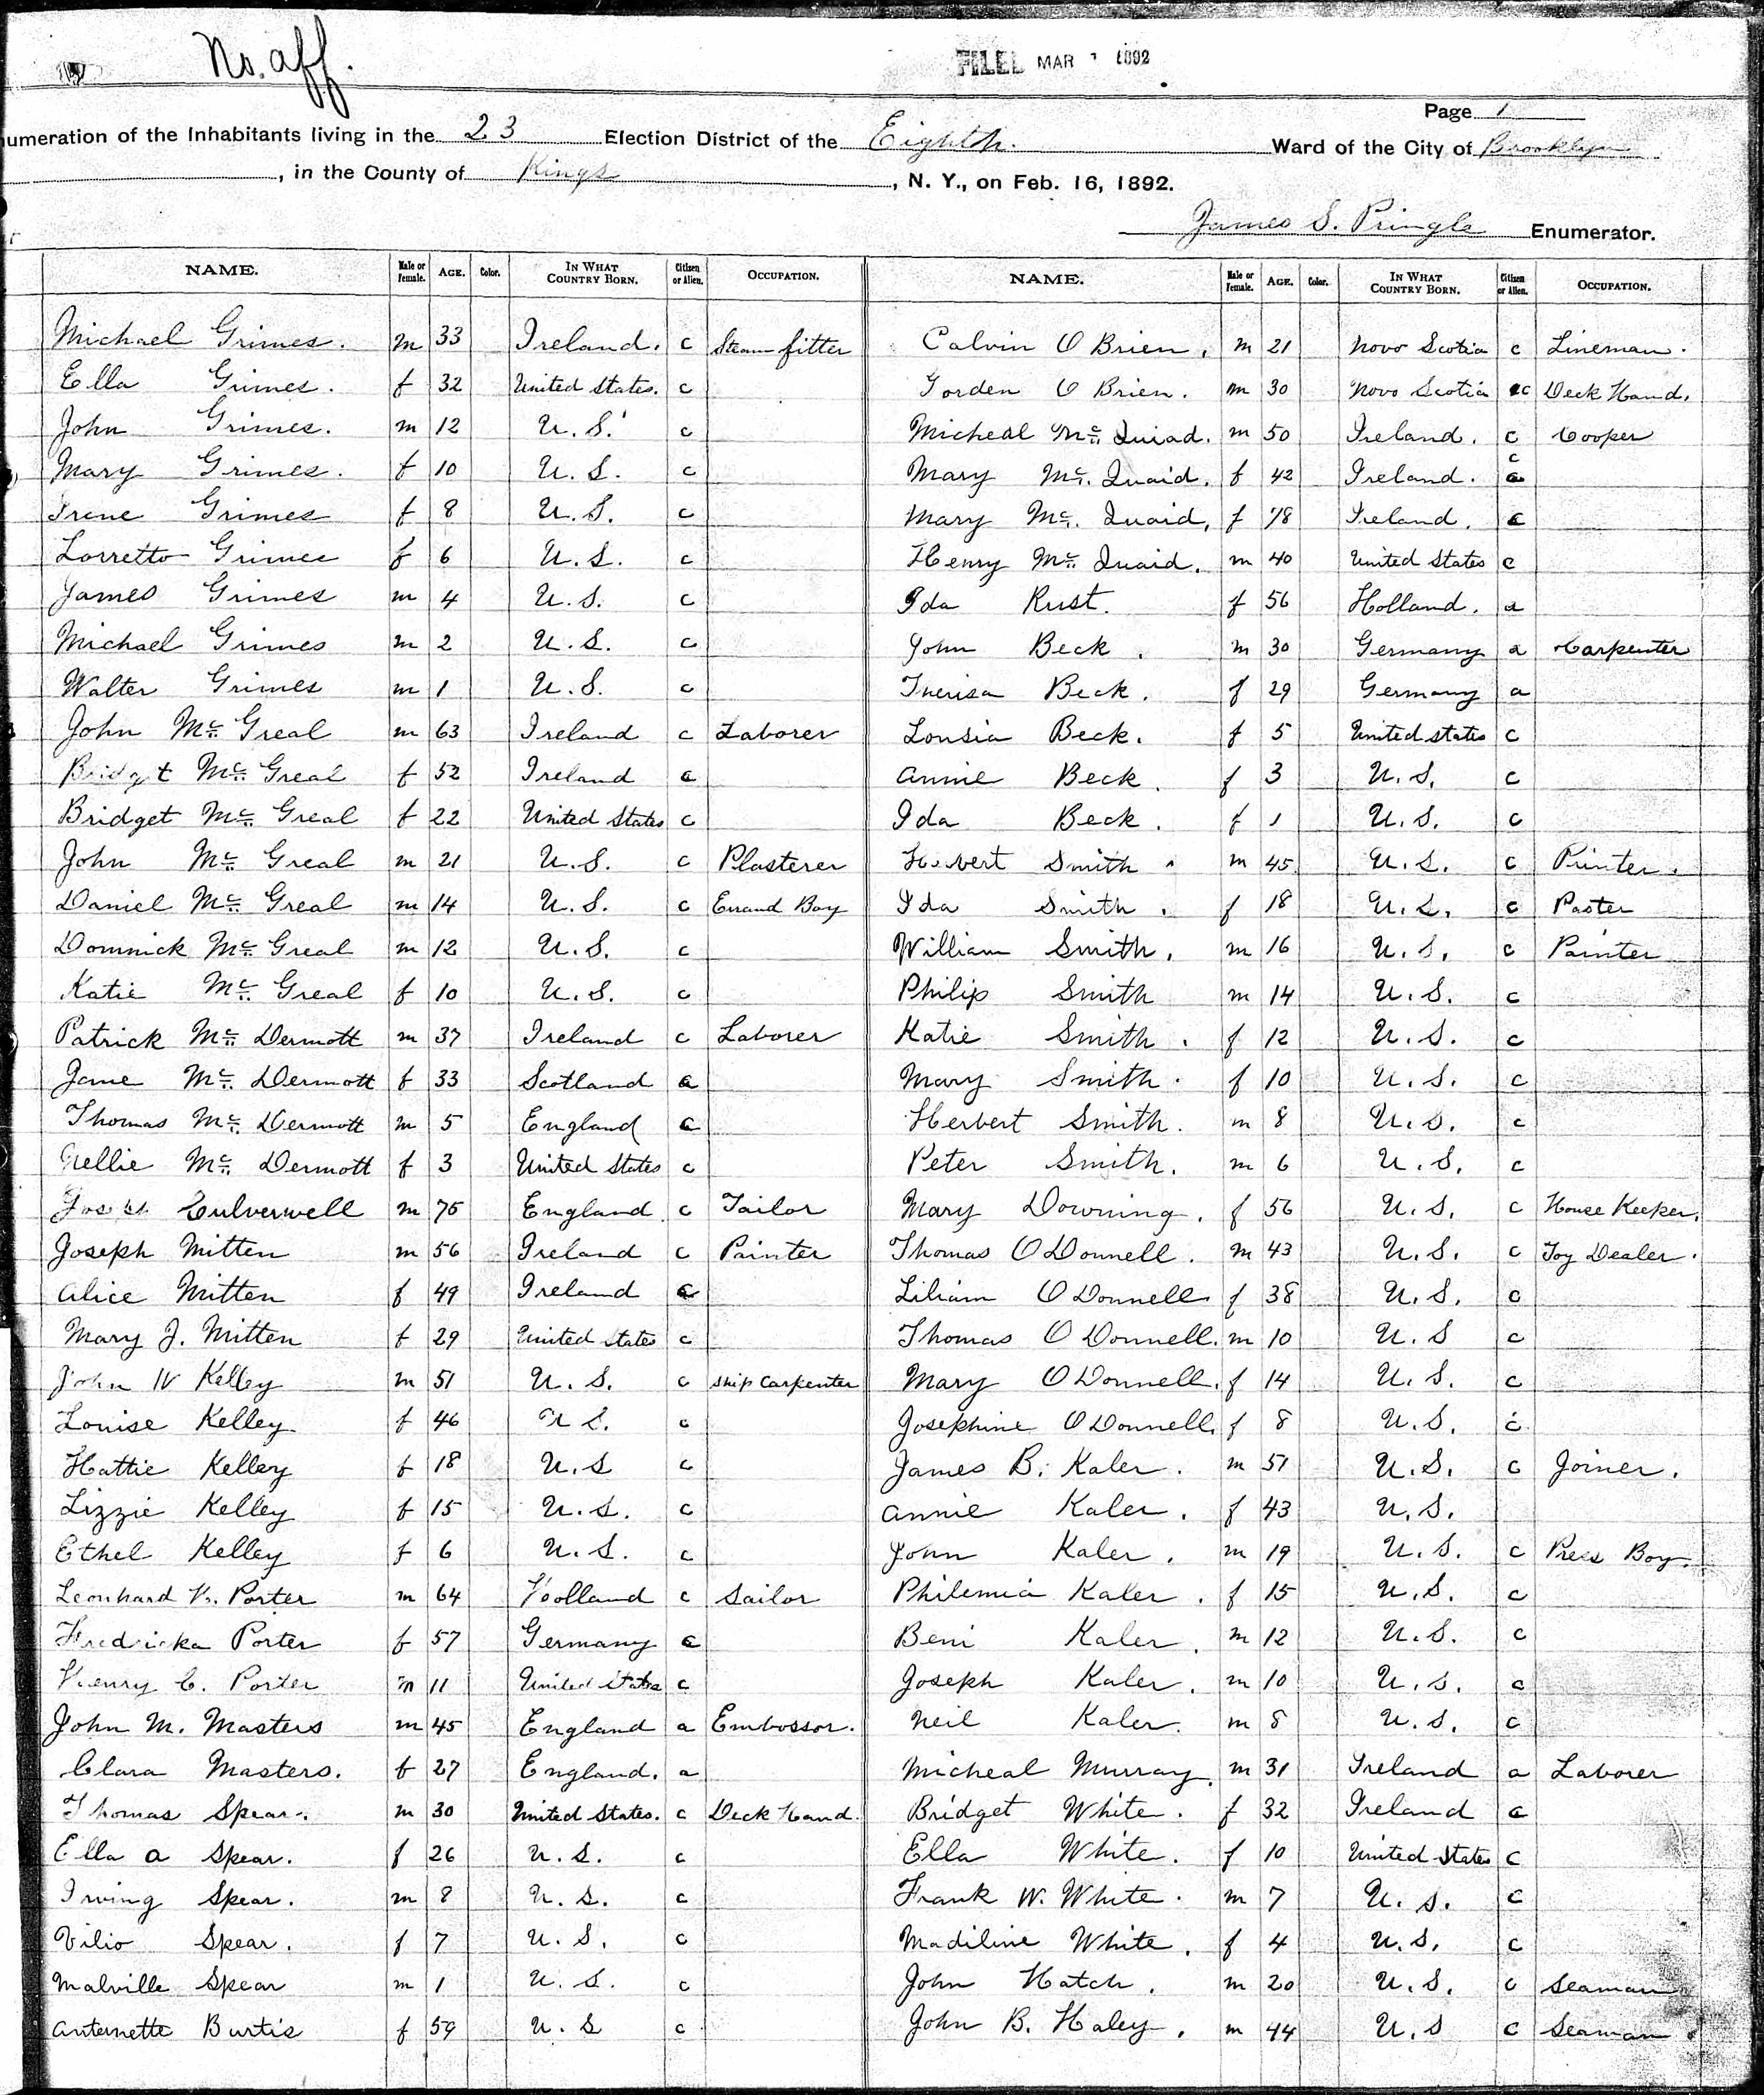 No. aff.
FILED MAR 1892
Page 1
numeration of the Inhabitants living in the 23 Election District of the Eighth. Ward of the City of Brooklyn
, in the County of Kings, N. Y., on Feb. 16, 1892.
James S. Pringle Enumerator.
NAME. Male or Female. AGE. Color. IN WHAT COUNTRY BORN. Citizen or Alien. OCCUPATION.
Michael Grimes. m 33 Ireland. c Steam fitter
Ella Grimes. f 32 United States. c
John Grimes. m 12 U.S. c
Mary Grimes. f 10 U.S. c
Irene Grimes f 8 U.S. c
Lorretto Grimes f 6 U.S. c
James Grimes m 4 U.S. c
Michael Grimes m 2 U.S. c
Walter Grimes m 1 U.S. c
John Mc Greal m 63 Ireland c Laborer
Bridget Mc Greal f 52 Ireland c
Bridget Mc Greal f 22 United States c
John Mc Greal m 21 U.S. c Plasterer
Daniel Mc Greal m 14 U.S. c Errand Boy
Domnick Mc Greal m 12 U.S. c
Katie Mc Greal f 10 U.S. c
Patrick Mc Dermott m 37 Ireland c Laborer
Jane Mc Dermott f 33 Scotland c
Thomas Mc Dermott m 5 England c
Nellie Mc Dermott f 3 United States c
Joseph Culverwell m 75 England c Tailor
Joseph Mitten m 56 Ireland c Painter
Alice Mitten f 49 Ireland c
Mary J. Mitten f 29 United States c
John W Kelley m 51 U.S. c Ship Carpenter
Louise Kelley f 46 U S. c
Hattie Kelley f 18 U.S c
Lizzie Kelley f 15 U.S. c
Ethel Kelley f 6 U.S. c
Leonhard H. Porter m 64 Holland c Sailor
Fredricka Porter f 57 Germany c
Henry C. Porter m 11 United States c
John M. Masters m 45 England a Embossor.
Clara Masters. f 27 England. a
Thomas Spear. m 30 United States. c Deck Hand.
Ella A Spear. f 26 U.S. c
Irving Spear. m 8 U.S. c
Vilio Spear. f 7 U.S. c
Malville Spear m 1 U.S. c
Anternette Burtis f 59 U.S c
NAME. Male or Female. AGE. Color. IN WHAT COUNTRY BORN. Citizen or Alien. OCCUPATION.
Calvin O Brien. m 21 Novo Scotia c Lineman.
Gorden O Brien. m 30 Novo Scotia c Deck Hand.
Micheal Mc Quiad. m 50 Ireland. c Cooper
Mary Mc. Quaid. f 42 Ireland. c
Mary Mc. Quaid, f 78 Ireland. c
Henry Mc Quaid. m 40 United States c
Ida Rust. f 56 Holland. a
John Beck. m 30 Germany a Carpenter
Therisa Beck. f 29 Germany a
Lousia Beck. f 5 United States c
Annie Beck. f 3 U.S. c
Ida Beck. f 1 U.S. c
Hebert Smith m 45 U.S. c Printer.
Ida Smith. f 18 U.S. c Paster
William Smith. m 16 U.S. c Painter
Philip Smith m 14 U.S. c
Katie Smith. f 12 U.S. c
Mary Smith. f 10 U.S. c
Herbert Smith. m 8 U.S. c
Peter Smith. m 6 U.S. c
Mary Downing. f 56 U.S. c House Keeper.
Thomas O Donnell. m 43 U.S. c Toy Dealer.
Liliam O Donnell f 38 U.S. c
Thomas O Donnell. m 10 U.S c
Mary O Donnell. f 14 U.S. c
Josephine O Donnell. f 8 U.S. c
James B. Kaler. m 51 U.S. c Joiner.
Annie Kaler. f 43 U.S.
John Kaler. m 19 U.S. c Press Boy.
Philemia Kaler. f 15 U.S. c
Beni Kaler. m 12 U.S. c
Joseph Kaler. m 10 U.S. c
Neil Kaler. m 8 U.S. c
Micheal Murray. m 31 Ireland a Laborer
Bridget White. f 32 Ireland c
Ella White. f 10 United States c
Frank W. White. m 7 U.S. c
Madiline White. f 4 U.S. c
John Hatch. m 20 U.S. c Seaman
John B. Haley. m 44 U.S c Seaman